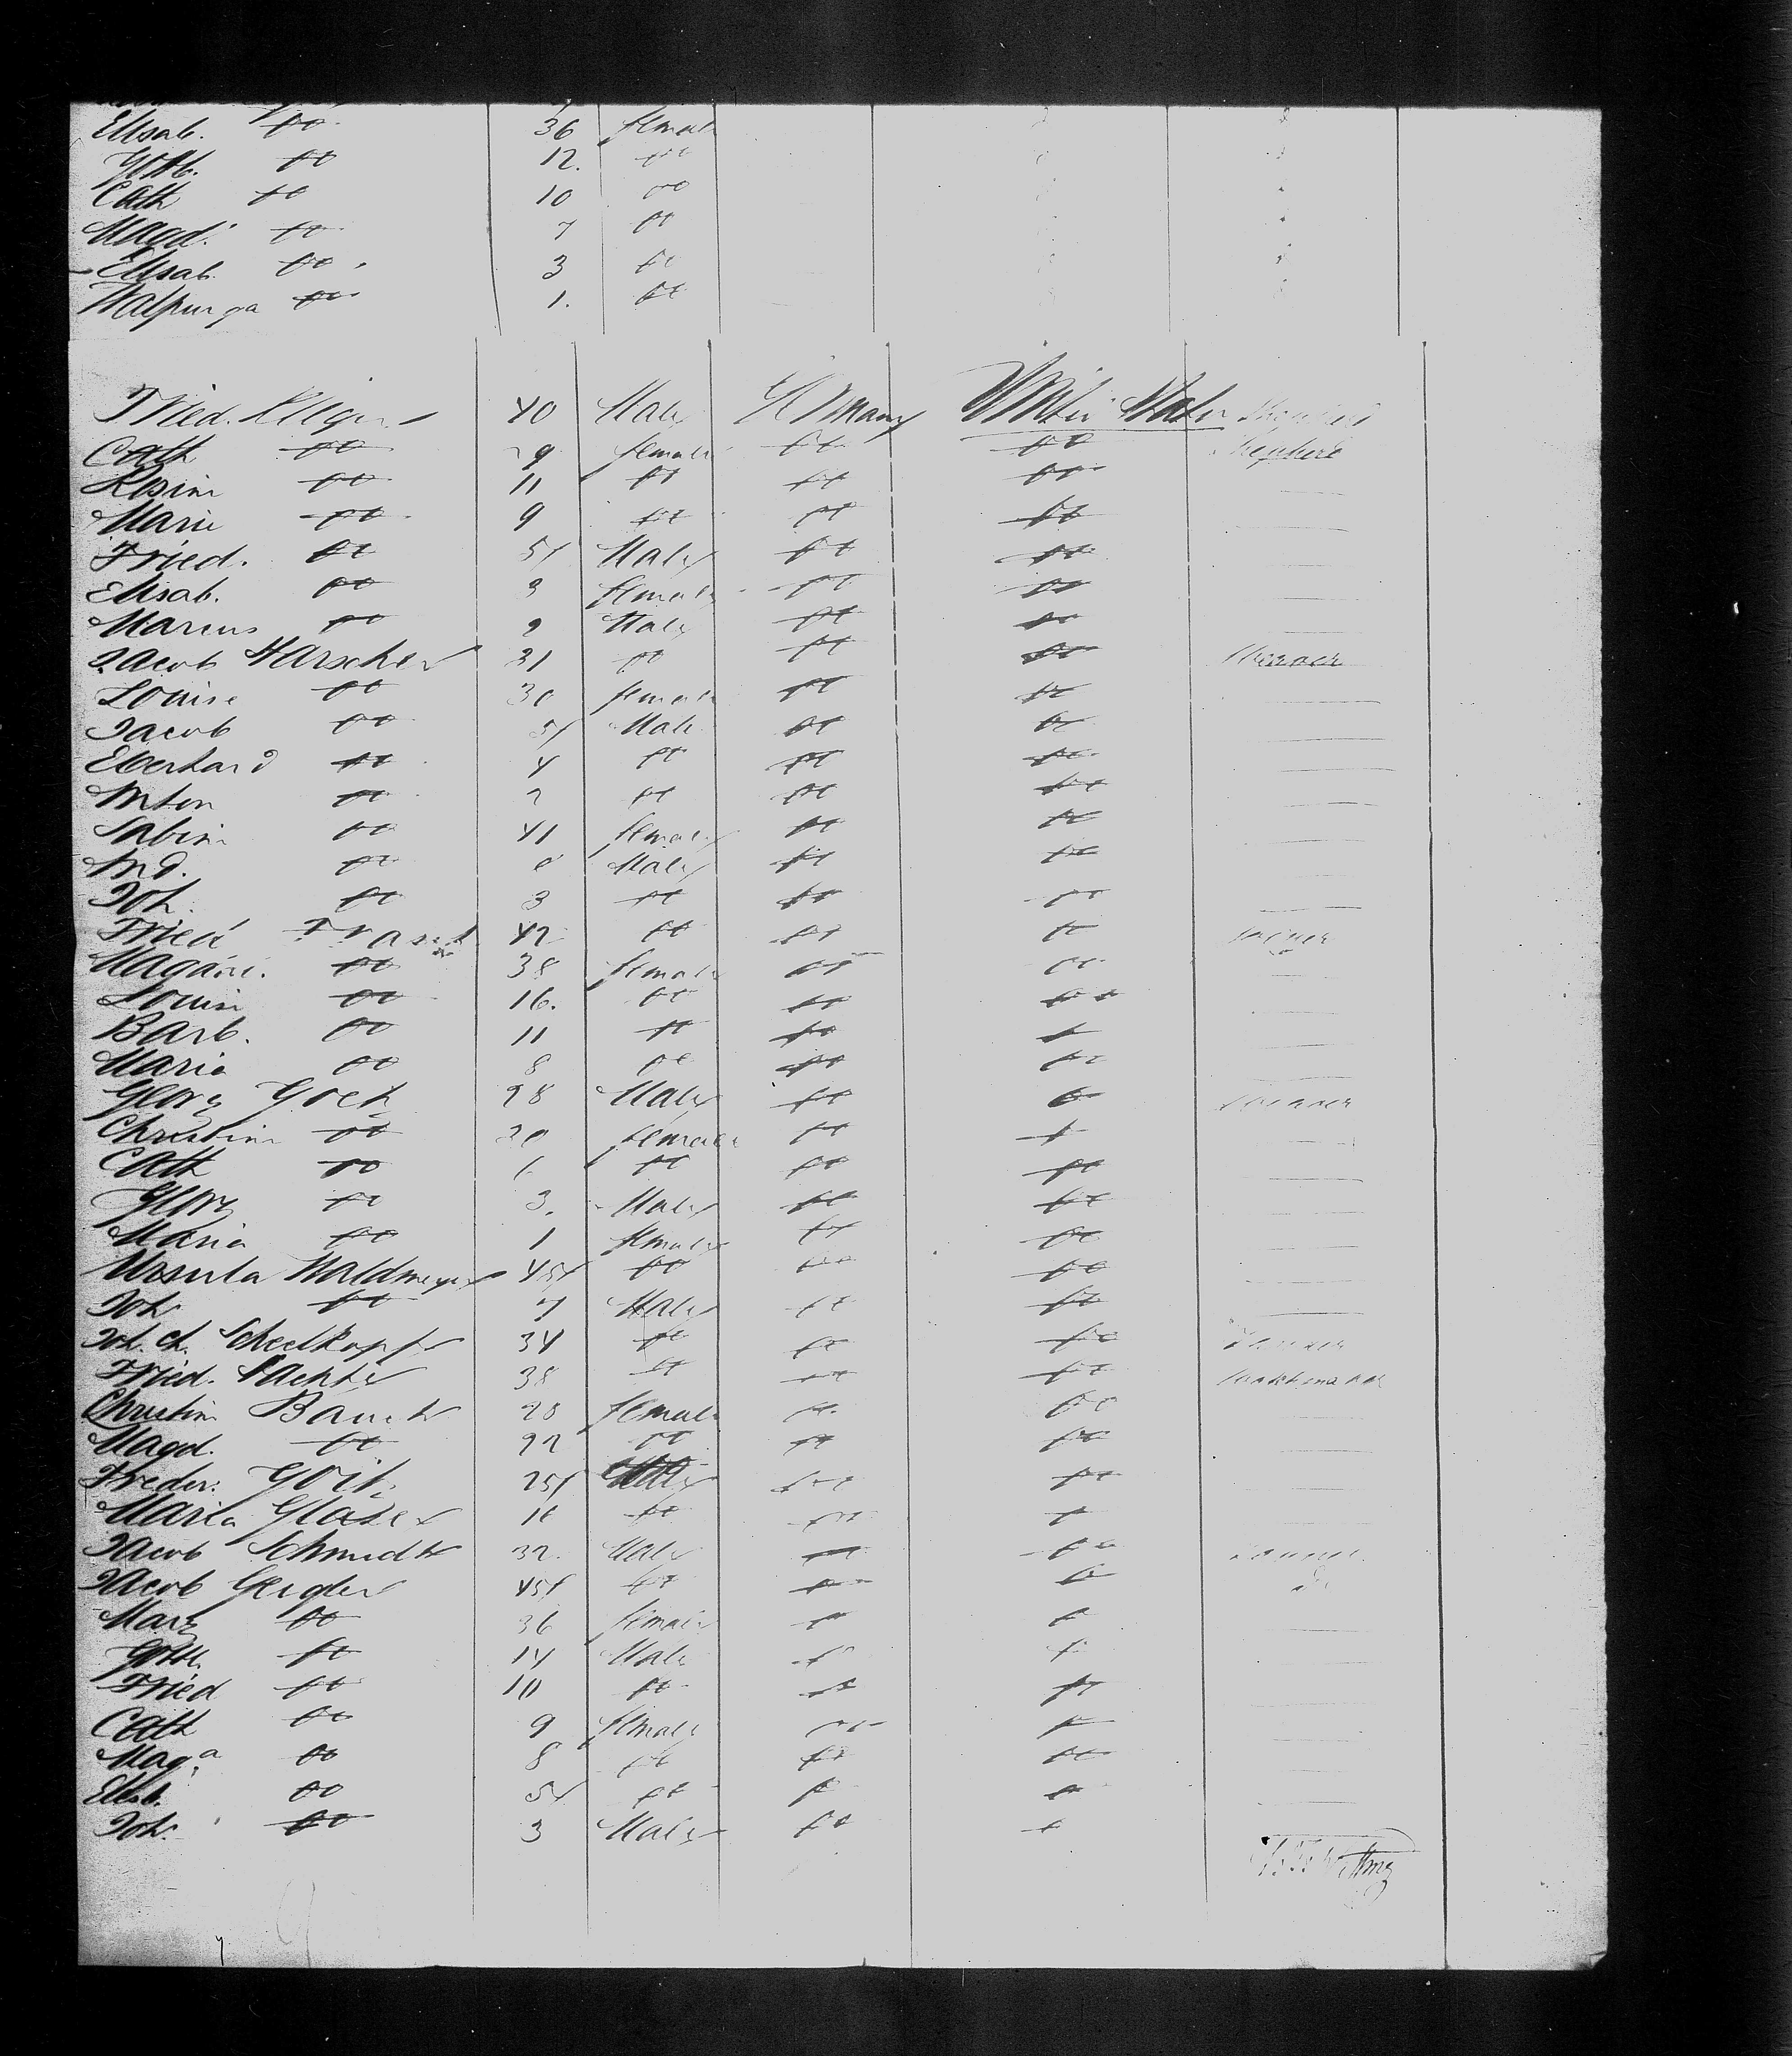 Elisab. do 36 female
Gottl. do 12. do
Cath do 10 do
Magd. do 7 do
Elisab. do 3 do
Walpurga do 1. do
Fried. 40 Male Germany United States
Cath do 29 female do do Shepherd
Rosine do 11 do do do
Marie do 9 do do do
Fried. do 5 Male do do
Elisab. do 3 female do do
Marcus do 2 Male do do
Jacob Harscher 31 do do do
Louise do 30 female do do
Jacob do 5 Male do do
Eberhard do 4 do do do
Anton do 2 do do do
Sabine do 41 female do do
And. do Male do do
Joh. do 3 do do do
Fried 42 do do do
do 38 female do do
Louise do 16. do do do
Barb. do 11 do do do
Maria do 8 do do do
Georg Goetz 28 Male do do
Christine do 20 female do do
Cath do 6 do do do
Georg do 3. Male do do
Maria do 1 female do do
Ursula Waldmeyer 45 do do do
Joh do 7 Male do do
Joh. Ch. Scheelkopf 34 do do do
Fried. 38 do do do
Christine Bauch 28 female do do
Magd. do 22 do do do
Freder. Goetz 25 do do
Maria Glaser 16 do do do
Jacob Schmidt 32. Male do do
Jacob Geigler 45 do do do do
Marg do 36 female do do
Gottl. do 14 Male do do
Fried do 10 do do do
Cath do 9 female do do
Maga do 8 do do do
Elisab. do 5 do do do
Joh. do 3 Male do do